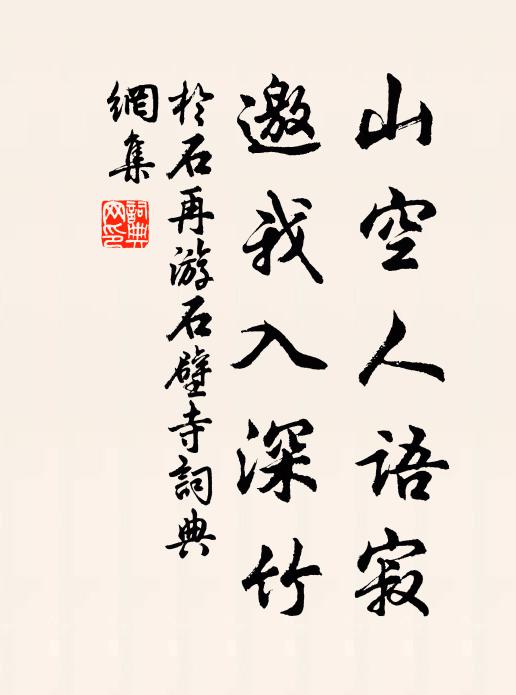 山空人語寂
邀我入深竹
於石再游石壁寺詞典
網集
詞典
网印